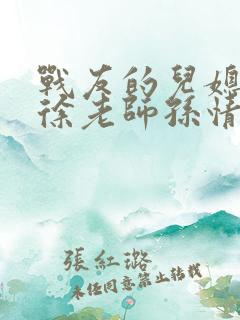 戰友的兒媳
徐老師孫情
張紅璐
未经同意禁止转载